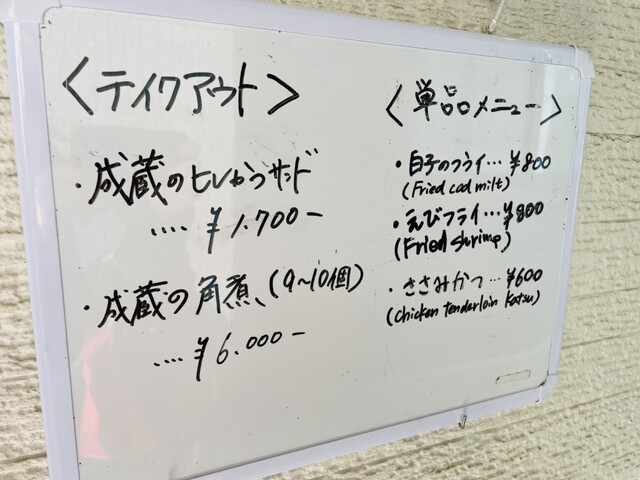 〈テイクアウト〉
・成蔵のヒレかつサンド
‥‥¥1.700−
・成蔵の角煮、(9~10個)
‥‥¥6.000−
〈単品メニュー〉
・白子のフライ…¥800
(Fried cod milt)
・えびフライ…¥800
(Fried shrimp)
・ささみかつ…¥600
(Chicken tenderloin katsu)